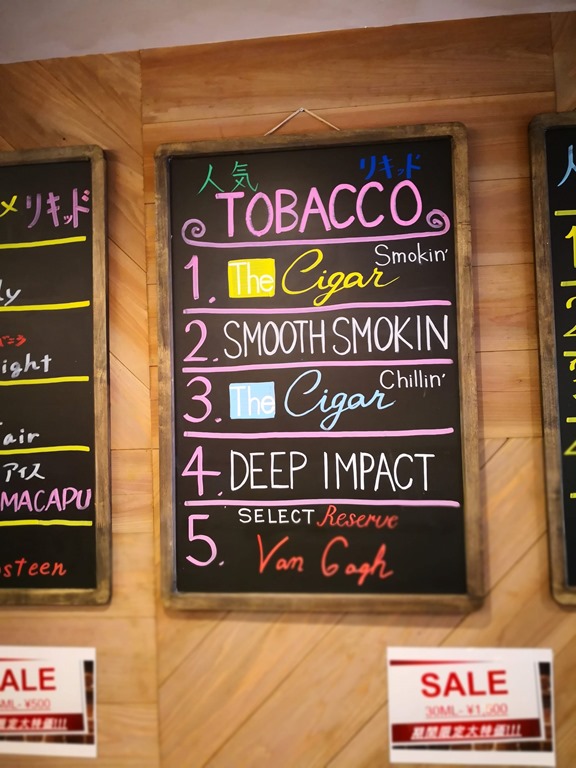 メ リキッド
ly
ight
air
アイス
MACAPU
osteen
人気 リキッド
TOBACCO
1. The Cigar Smokin'
2. SMOOTH SMOKIN
3. The Cigar Chillin'
4. DEEP IMPACT
5. SELECT Reserve
Van Gogh
ALE
ML- ¥500
限定大特価!!!
SALE
30ML- ¥1,500
期間限定大特価!!!